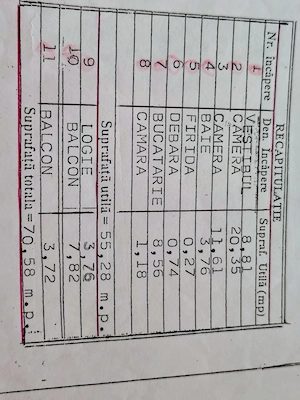 RECAPITULAŢIE
Nr. încăpere Den. Încăpere Supraf. Utilă (mp)
1 VESTIBUL 8,81
2 CAMERA 20,35
3 CAMERA 11,61
4 BAIE 3,76
5 FIRIDA 0,27
6 DEBARA 0,74
7 BUCATARIE 8,56
8 CAMARA 1,18
Suprafaţă utilă = 55,28 m.p.
9 LOGIE 3,76
10 BALCON 7,82
11 BALCON 3,72
Suprafaţă totală = 70,58 m.p.